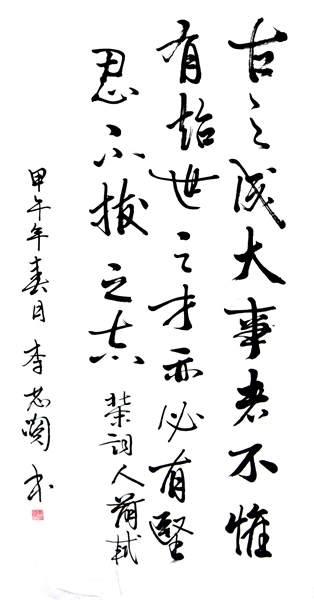 古之成大事者不惟
有超世之才亦必有堅
忍不拔之志 北宋詞人蘇軾
甲午年春月 李 书